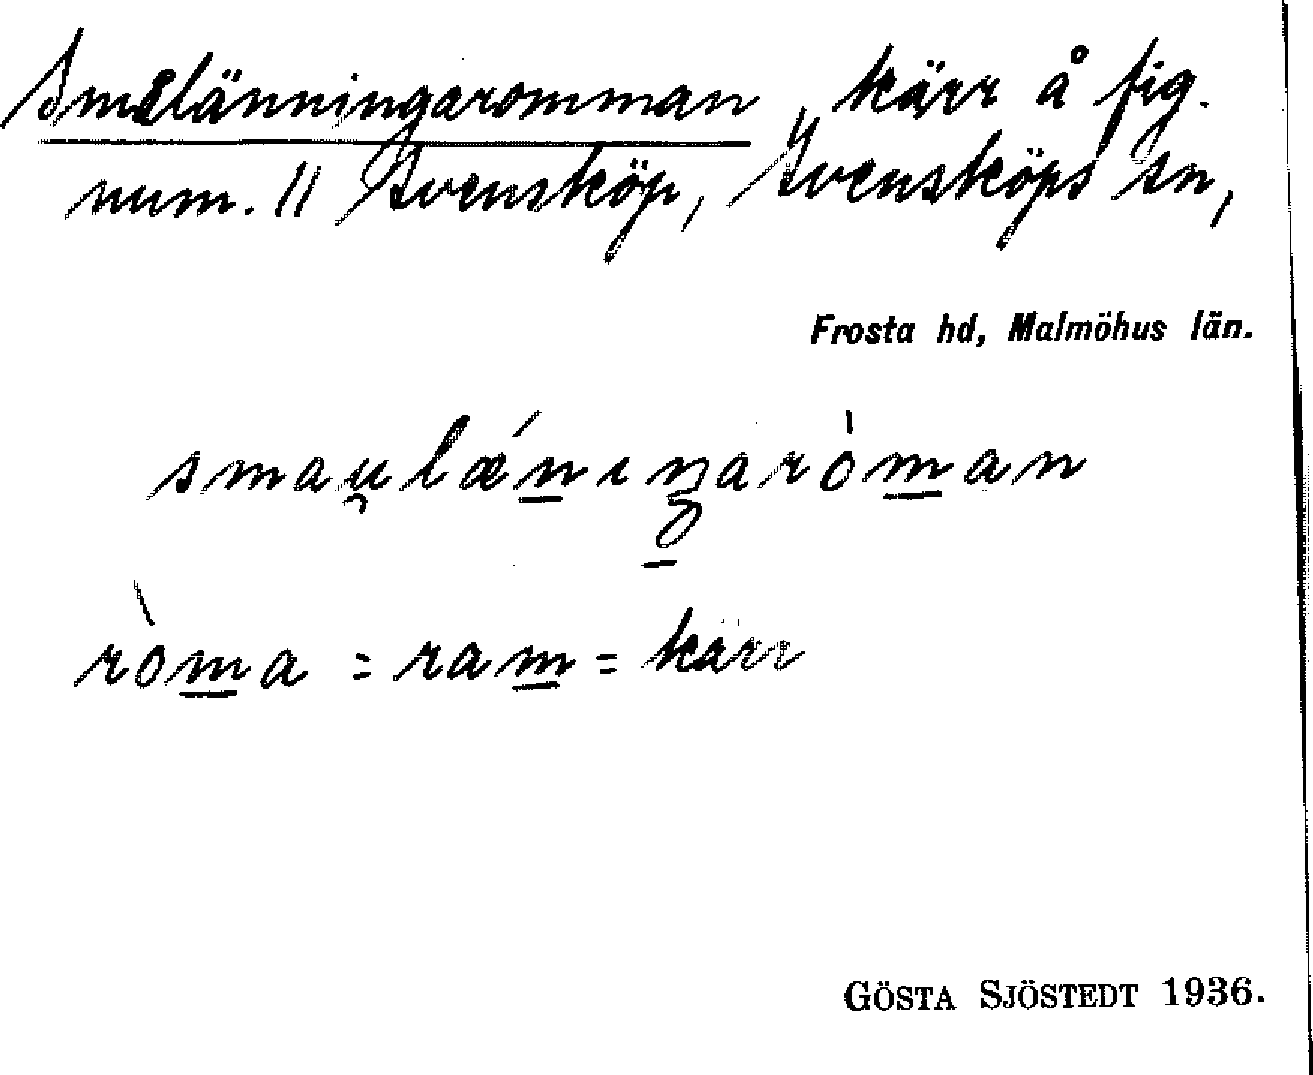 Smålänningaromman, kärr å fig.
num. 11 Svensköp, Svensköps sn,
Frosta hd, Malmöhus län.
smau̯lǽn̲ıŋ̲aròm̲an
ròm̲a = ram̲ = kärr
GÖSTA SJÖSTEDT 1936.